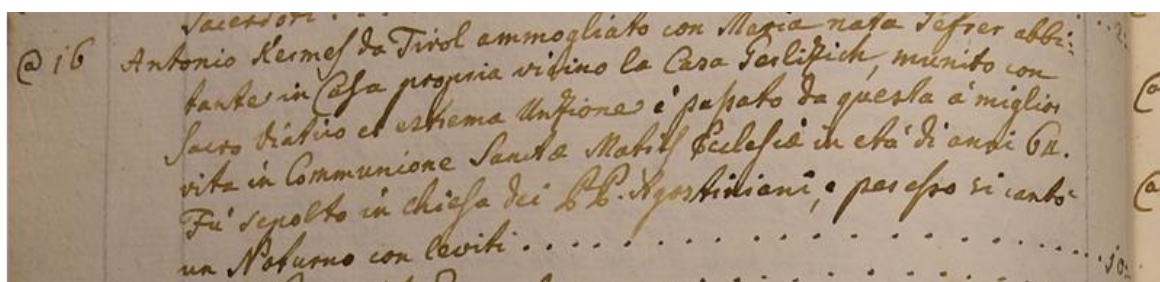 Sacerdoti . . .
@ 16 Antonio Kermes da Tirol ammogliato con Maria nata Tefrer abbi:
tante in Casa propria vicino la Casa Terlizich, munito con
Sacro Viatico et estrema Unzione è passato da questa à miglior
vita in Communione Sanctæ Matris Ecclesiæ in età di anni
Fù sepolto in chiesa dei PP. Agostiniani, e per esso si cantò
un Noturno con leviti . . . . . . . . . . . . . . . . . .